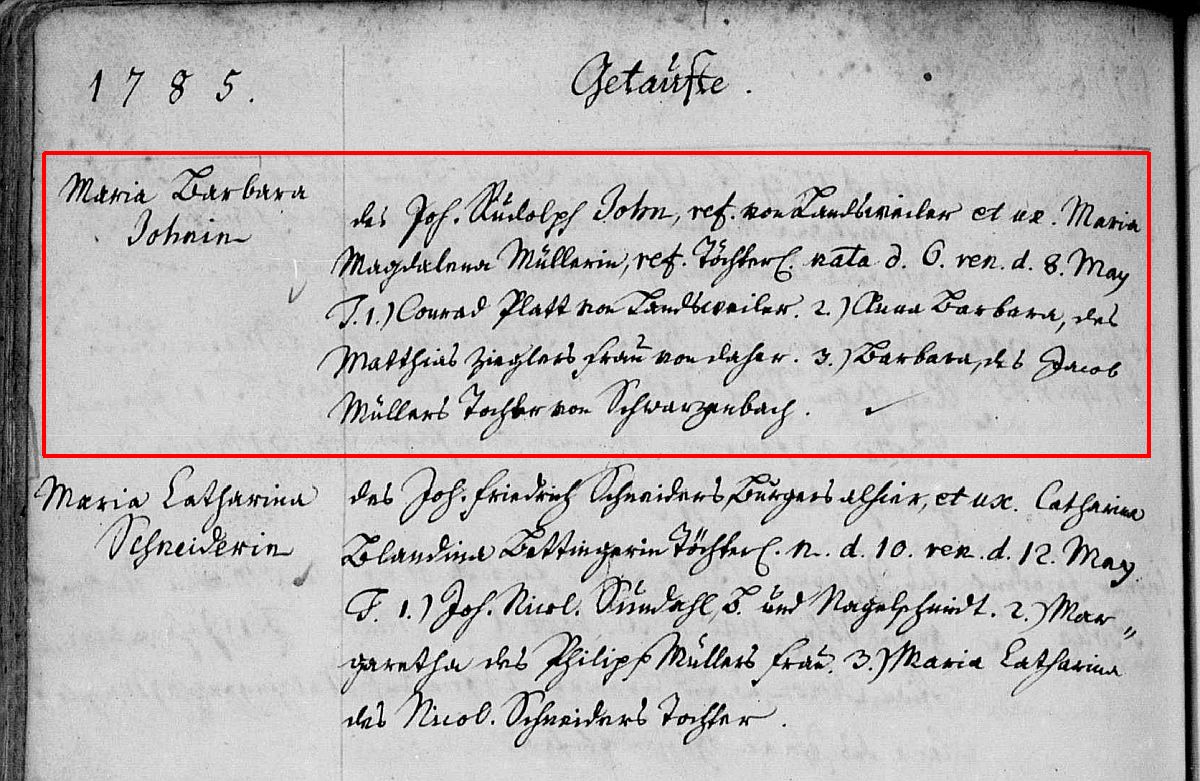 1785.
Getaufte.
Maria Barbara
Johnin
des Joh. Rudolph John, ref. von Landsweiler et ux. Maria
Magdalena Müllerin, ref. Töchterl. nata d. 6. ren. d. 8. May
T. 1.) Conrad Platt von Landsweiler. 2.) Anna Barbara, des
Matthias Zieglers frau von daher. 3.) Barbara, des Jacob
Müllers Tochter von Schwarzenbach.
Maria Catharina
Schneiderin
des Joh. Friedrich Schneiders, Burgers alhier, et ux. Catharina
Blandina Bettingerin Töchterl. n. d. 10. ren. d. 12. May
T. 1.) Joh. Nicol. Sundahl, B. und Nagelschmidt. 2.) Mar„
garetha des Philipp Müllers frau. 3.) Maria Catharina
des Nicol. Schneiders Tochter.